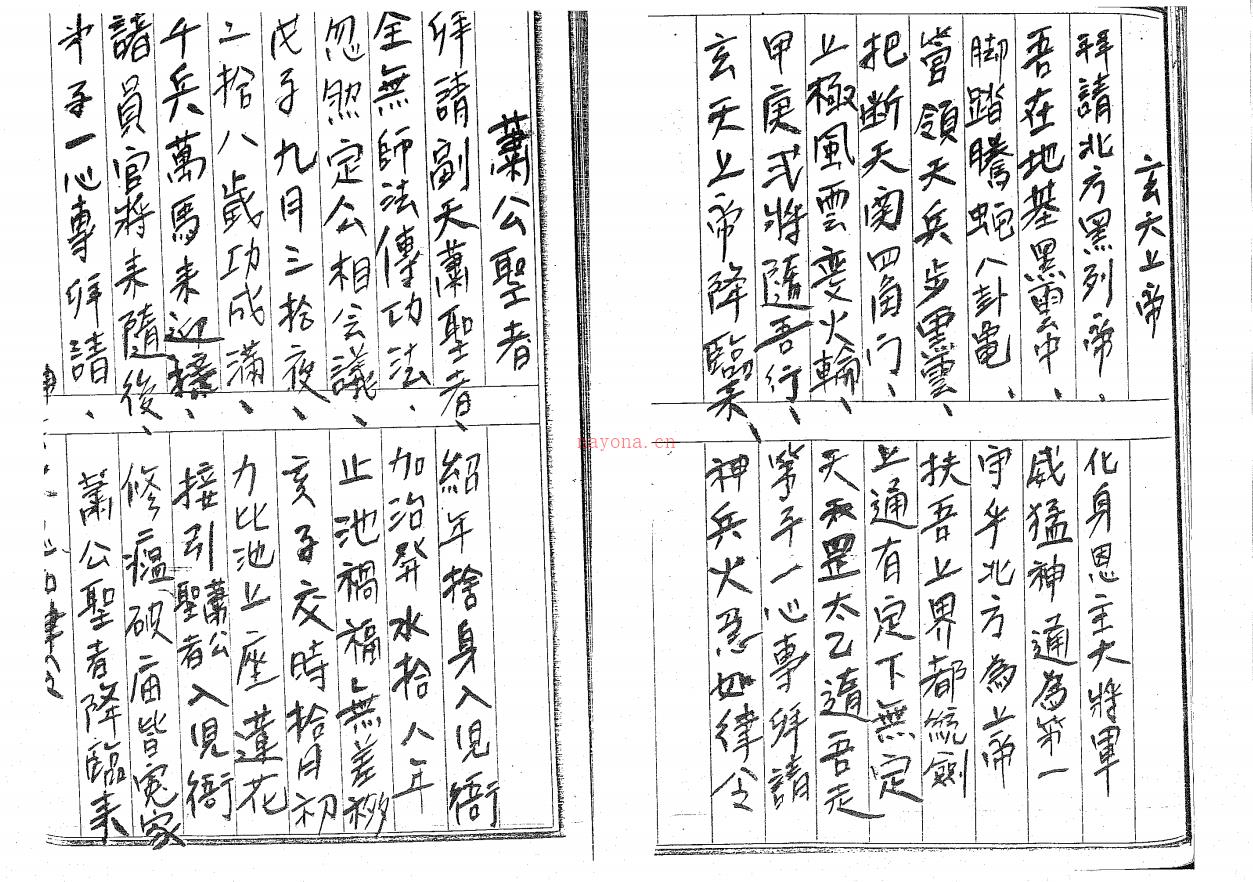 玄天上帝
拜請北方黑列帝。化身恩主大將軍
吾在地基黑雲中、威猛神通為第一
脚踏騰蛇八卦龜、守半北方為上帝
管領天兵步黑雲、扶吾上界都統劍
把断天関四面门、上通有定下無定
上極風雲变火輪、天和罡太乙邉吾走
甲庚弍將隨吾行、等子一心專拜請
玄天上帝降臨來、神兵火急如律令
蕭公聖者
拜請副天蕭聖者、紹年捨身入児衙
全無師法傳功法、加治昇水拾八年
忽然定公相会議、止池禍福無差移
戊子九月三拾夜、亥子交時拾月初
二拾八歲功成满、力比池上座蓮花
千兵萬馬来迎接、接引蕭公聖者入児衙
諸員官將来隨後、修瘟破庙皆冤家
弟子一心專拜請、蕭公聖者降臨来
nayona.cn